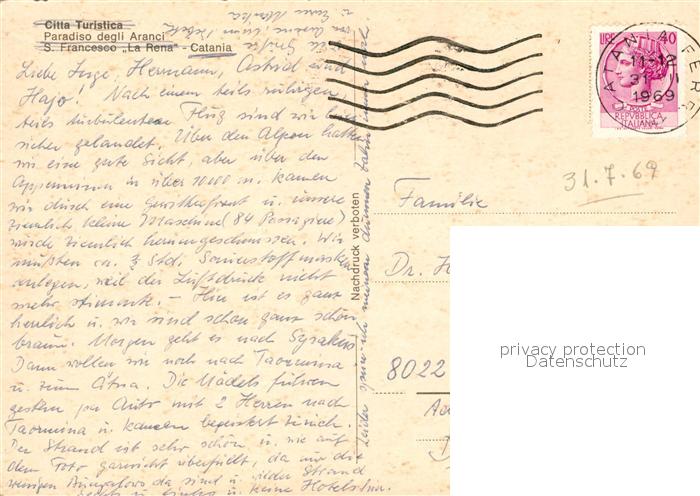 Citta Turistica
Paradiso degli Aranci
S. Francesco „La Rena" - Catania
Liebe Inge, Hermann, Astrid und
Hajo! Nach einem teils ruhigen,
teils turbulenten Flug sind wir hier
sicher gelandet. Über den Alpen hatten
wir eine gute Sicht, aber über den
Appeninen in über 10000 m. kamen
wir durch eine Gewitterfront u. unsere
ziemlich kleine Maschine (84 Passagiere)
wurde ziemlich herumgeschmissen. Wir
mußten ca. ¾ Std. Sauerstoffmasken
anlegen, weil der Luftdruck nicht
mehr stimmte. - Hier ist es ganz
herrlich u. wir sind schon ganz schön
braun. Morgen geht es nach Syrakus.
Dann wollen wir noch nach Taormina
u. zum Ätna. Die Mädels fuhren
gestern per Auto mit 2 Herren nach
Taormina u. kamen begeistert zurück.
Der Strand ist sehr schön u. wie auf
dem Foto garnicht überfüllt, da nur die
wenigen Bungalows da sind u. wilder Strand
u. keine Hotels
Leider spüre ich meinen dummen Zahn immer noch
Nachdruck verboten
LIRE 40
POSTE
REPVBBLICA
ITALIANA
CATANIA FERR
11-12
31 VII
1969
31.7.69
Familie
Dr. H
8022
privacy protection
Datenschutz